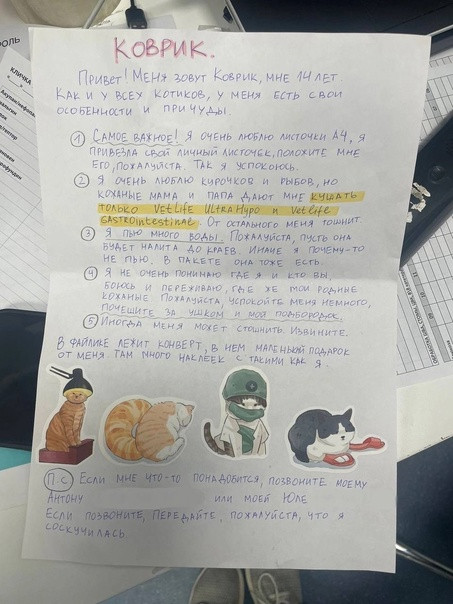 КОВРИК.
Привет! Меня зовут Коврик, мне 14 лет.
Как и у всех котиков, у меня есть свои
особенности и причуды.
1) Самое важное! Я очень люблю листочки А4, я
привезла свой личный листочек, положите мне
его, пожалуйста. Так я успокоюсь.
2 Я очень люблю курочков и рыбов, но
кожаные мама и папа дают мне кушать
только VetLife UltraHypo и Vetlife
gastrointestinal. От остального меня тошнит.
3 Я пью много воды. Пожалуйста, пусть она
будет налита до краев. Иначе я почему-то
не пью. В пакете она тоже есть.
4 Я не очень понимаю где я и кто вы,
боюсь и переживаю, где же мои родные
кожаные. Пожалуйста, успокойте меня немного,
почешите за ушком и мой подбородок.
5 Иногда меня может стошнить. Извините.
В файлике лежит конверт, в нем маленький подарок
от меня. Там много наклеек с такими как я.
П.С Если мне что-то понадобится, позвоните моему
Антону или моей Юле
Если позвоните, передайте, пожалуйста, что я
соскучилась
КЛИЧКА